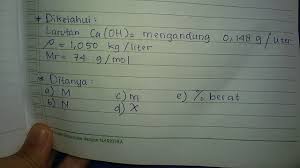 * Diketahui :
Larutan Ca(OH)₂ mengandung 0,148 g/liter
ρ = 1,050 kg/liter
Mr = 74 g/mol
* Ditanya :
a) M c) m e) % berat
b) N d) X